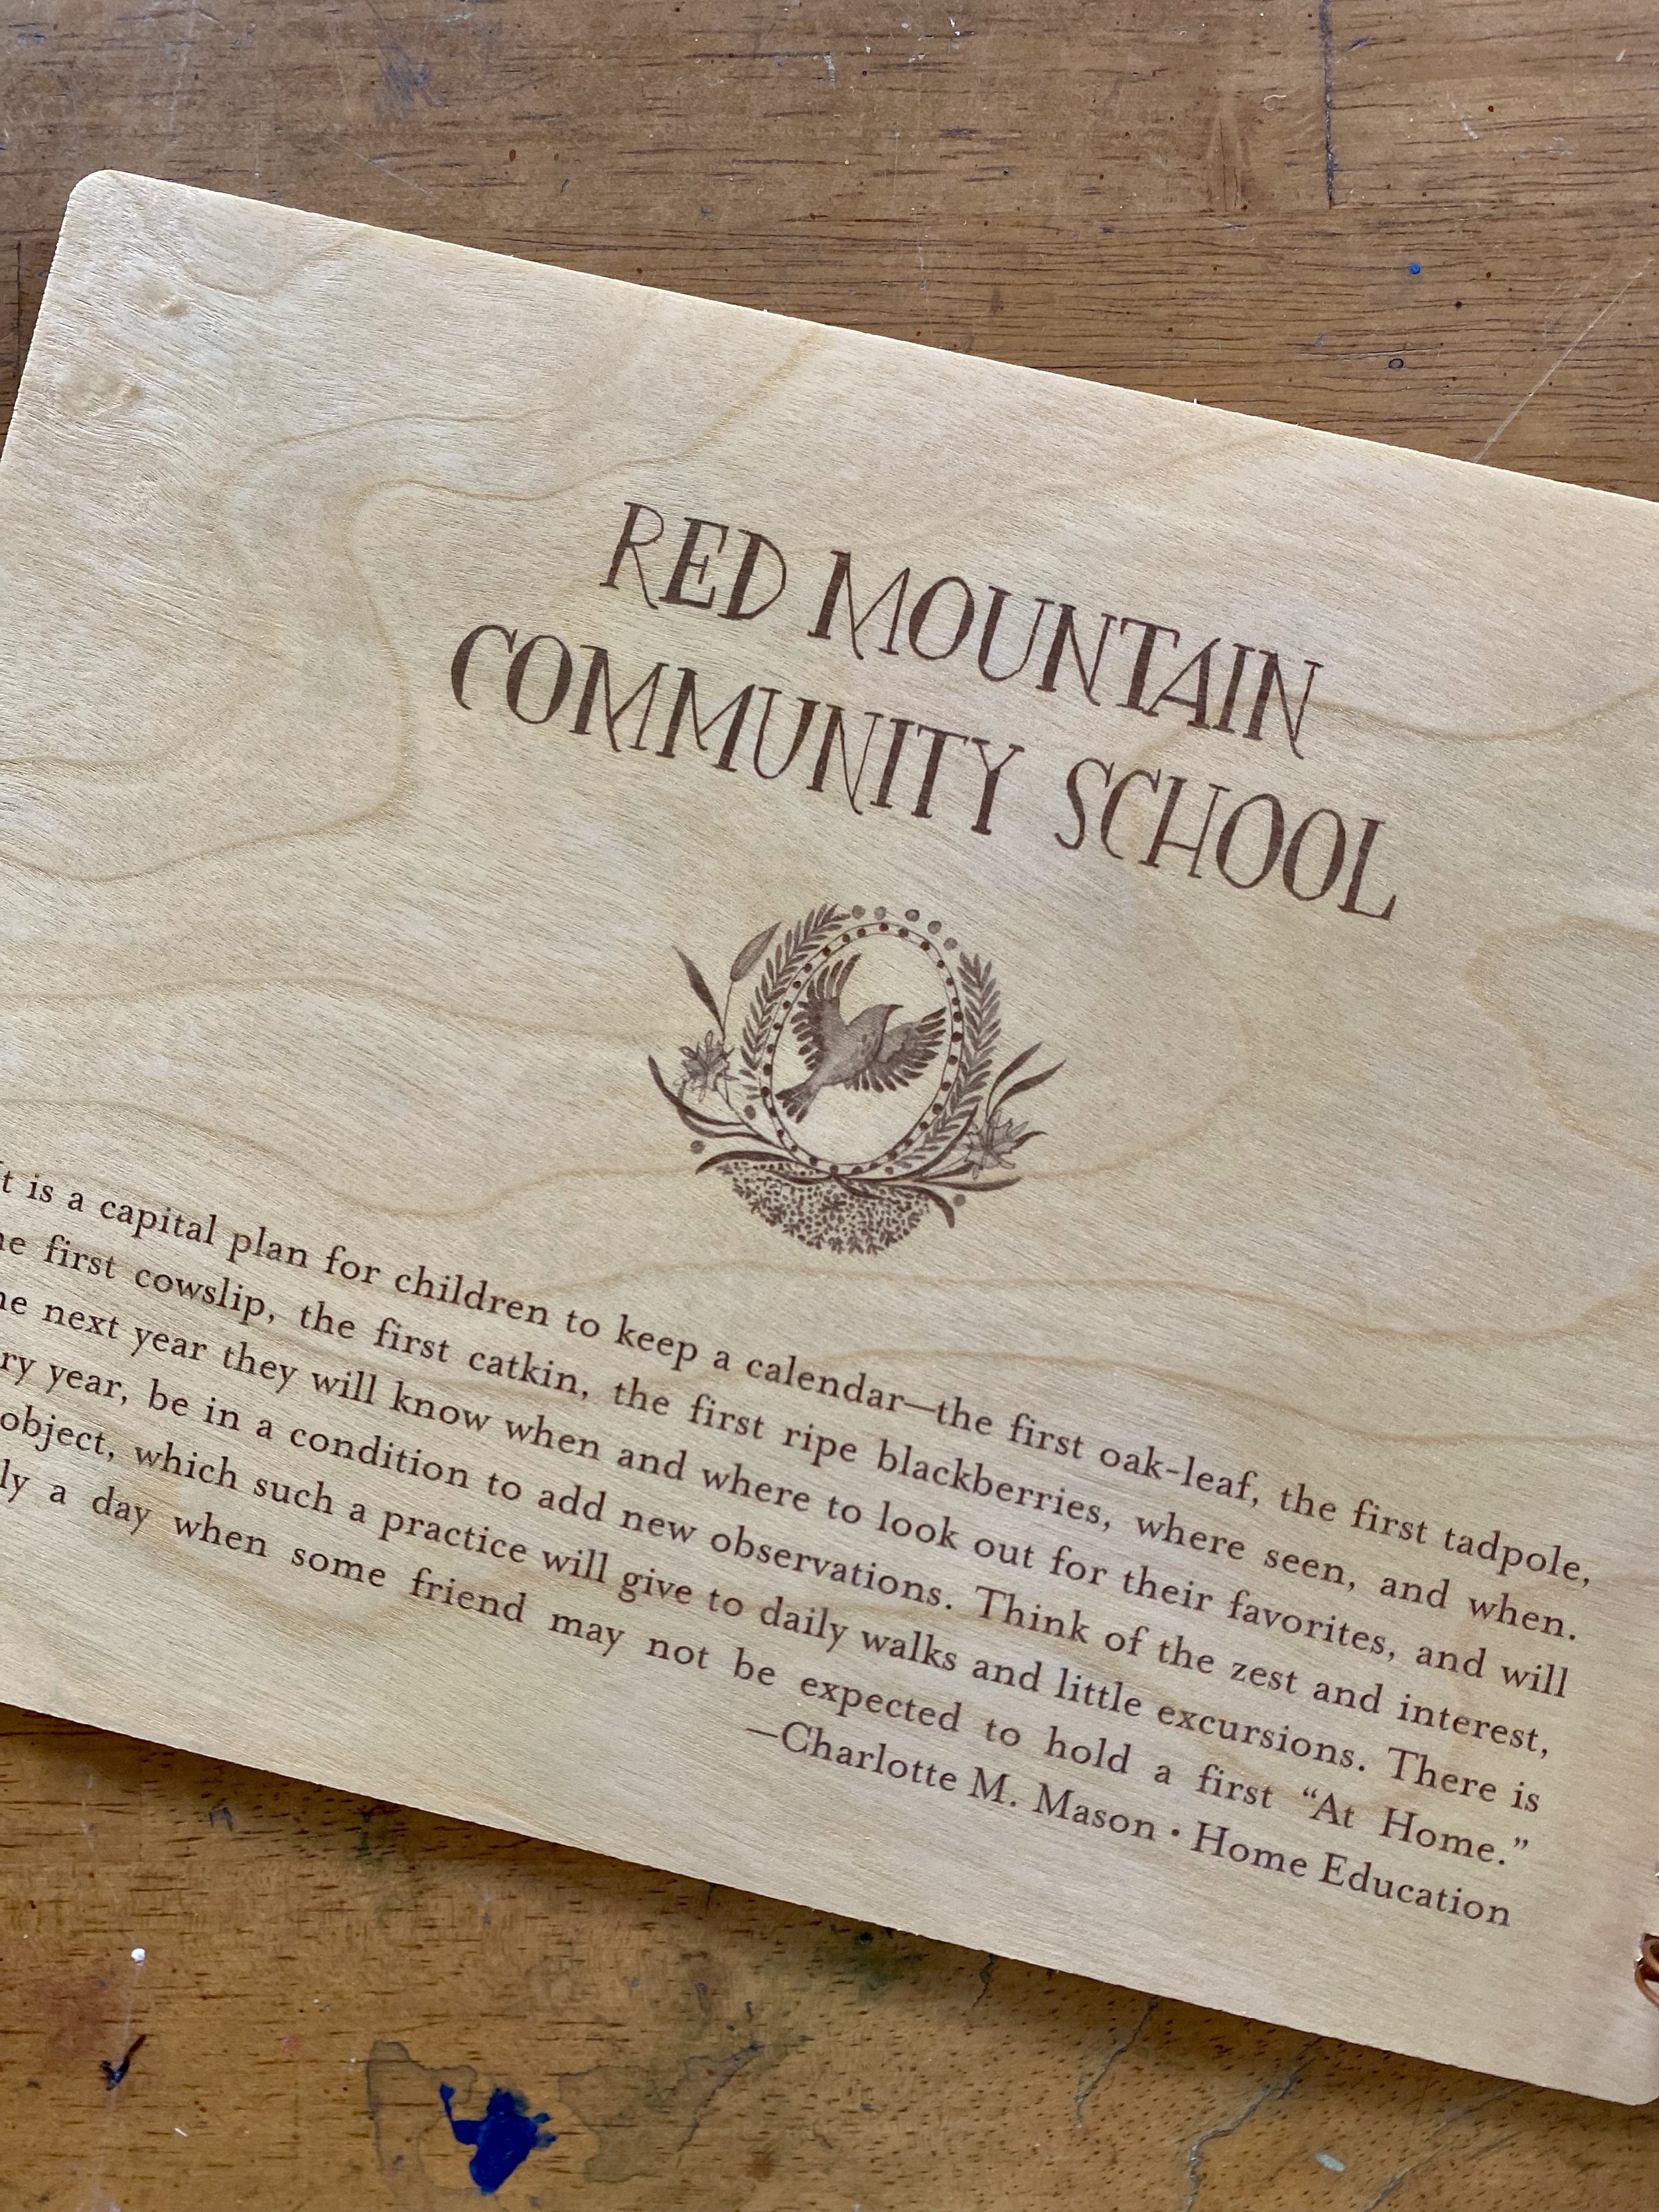 RED MOUNTAIN
COMMUNITY SCHOOL
t is a capital plan for children to keep a calendar—the first oak-leaf, the first tadpole,
he first cowslip, the first catkin, the first ripe blackberries, where seen, and when.
he next year they will know when and where to look out for their favorites, and will
ry year, be in a condition to add new observations. Think of the zest and interest,
object, which such a practice will give to daily walks and little excursions. There is
ly a day when some friend may not be expected to hold a first “At Home.”
—Charlotte M. Mason • Home Education